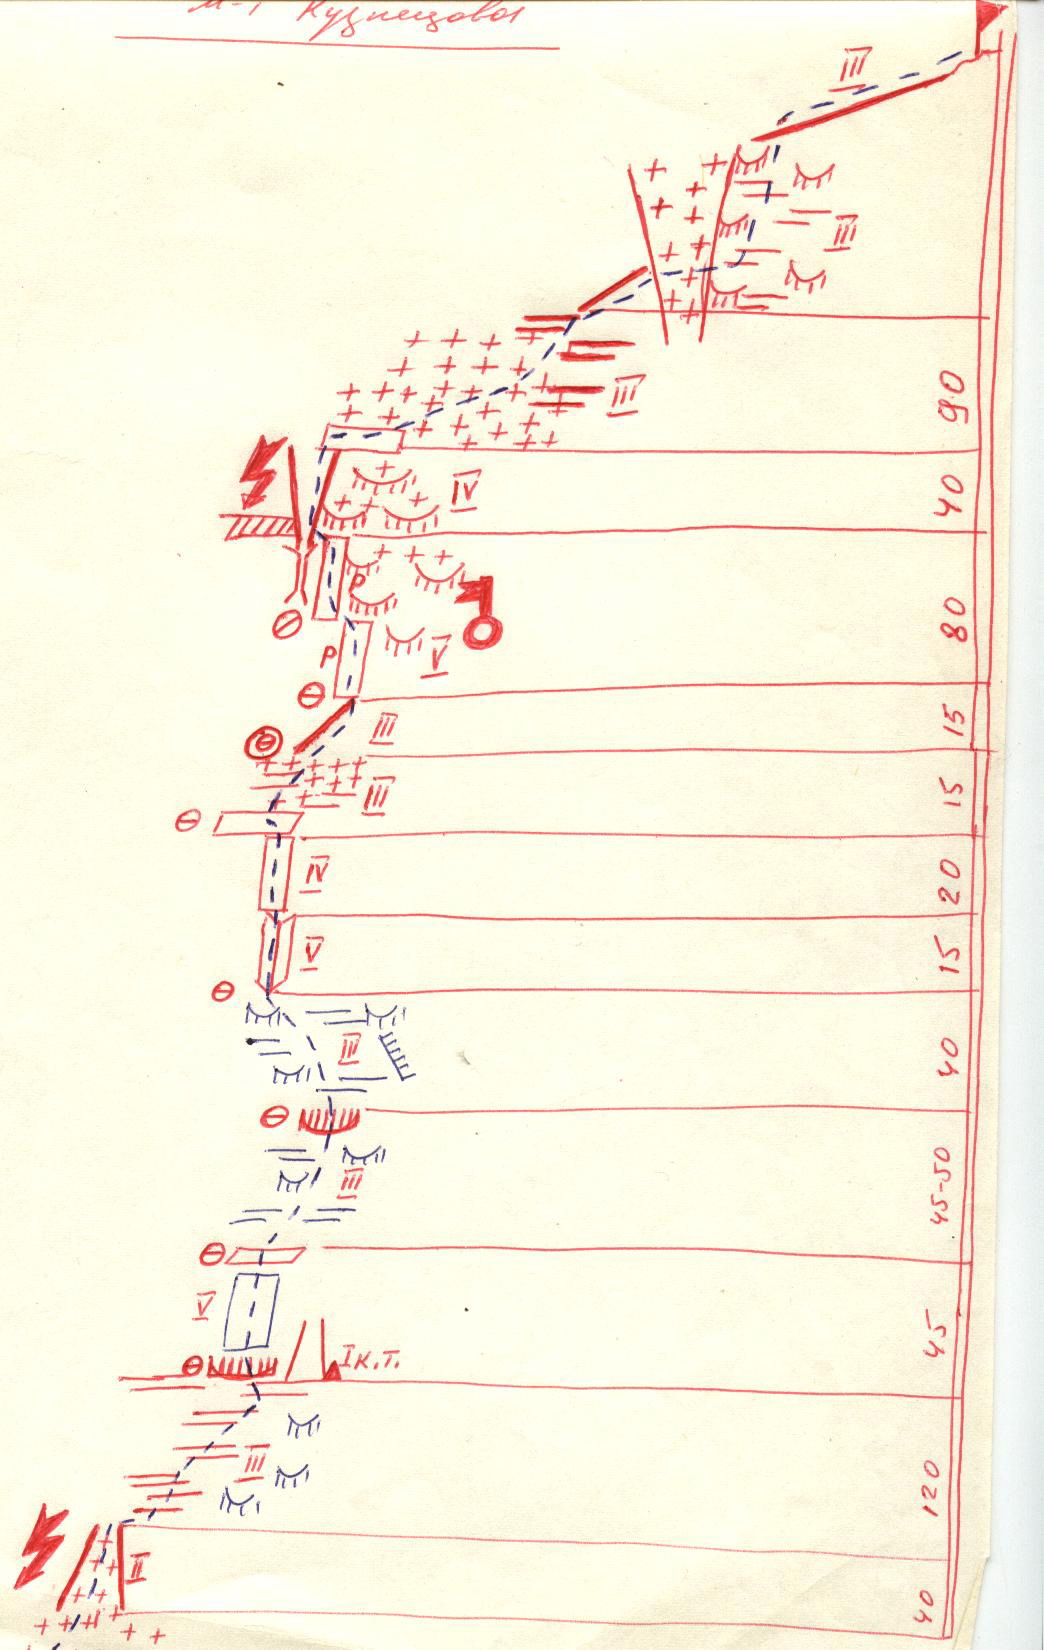 м-т Кузнецова
III
III
III
90
IV
40
р
80
р
V
III
15
III
15
IV
20
V
15
III
40
III
45-50
V
45
I к.т.
III
120
II
40